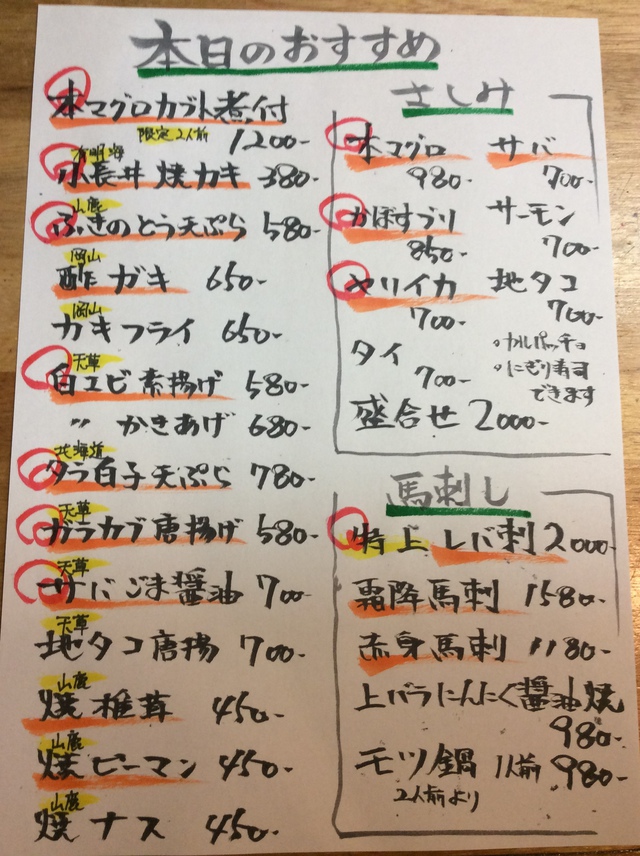 本日のおすすめ
本マグロカブト煮付
限定2人前 1200-
有明海
小長井焼カキ 380-
山鹿
ふきのとう天ぷら 580-
岡山
酢ガキ 650-
岡山
カキフライ 650-
天草
白エビ素揚げ 580-
〃 かきあげ 680-
北海道
タラ白子天ぷら 780-
天草
ガラカブ唐揚げ 580-
天草
サバごま醤油 700-
天草
地タコ唐揚 700-
山鹿
焼椎茸 450-
山鹿
焼ピーマン 450-
山鹿
焼ナス 450-
さしみ
本マグロ サバ
980- 700-
かぼすブリ サーモン
850- 700-
ヤリイカ 地タコ
700- 700-
タイ
700-
○カルパッチョ
○にぎり寿司
できます
盛合せ 2000-
馬刺し
特上レバ刺 2000-
霜降馬刺 1580-
赤身馬刺 1180-
上バラにんにく醤油焼
980-
モツ鍋 1人前 980-
2人前より